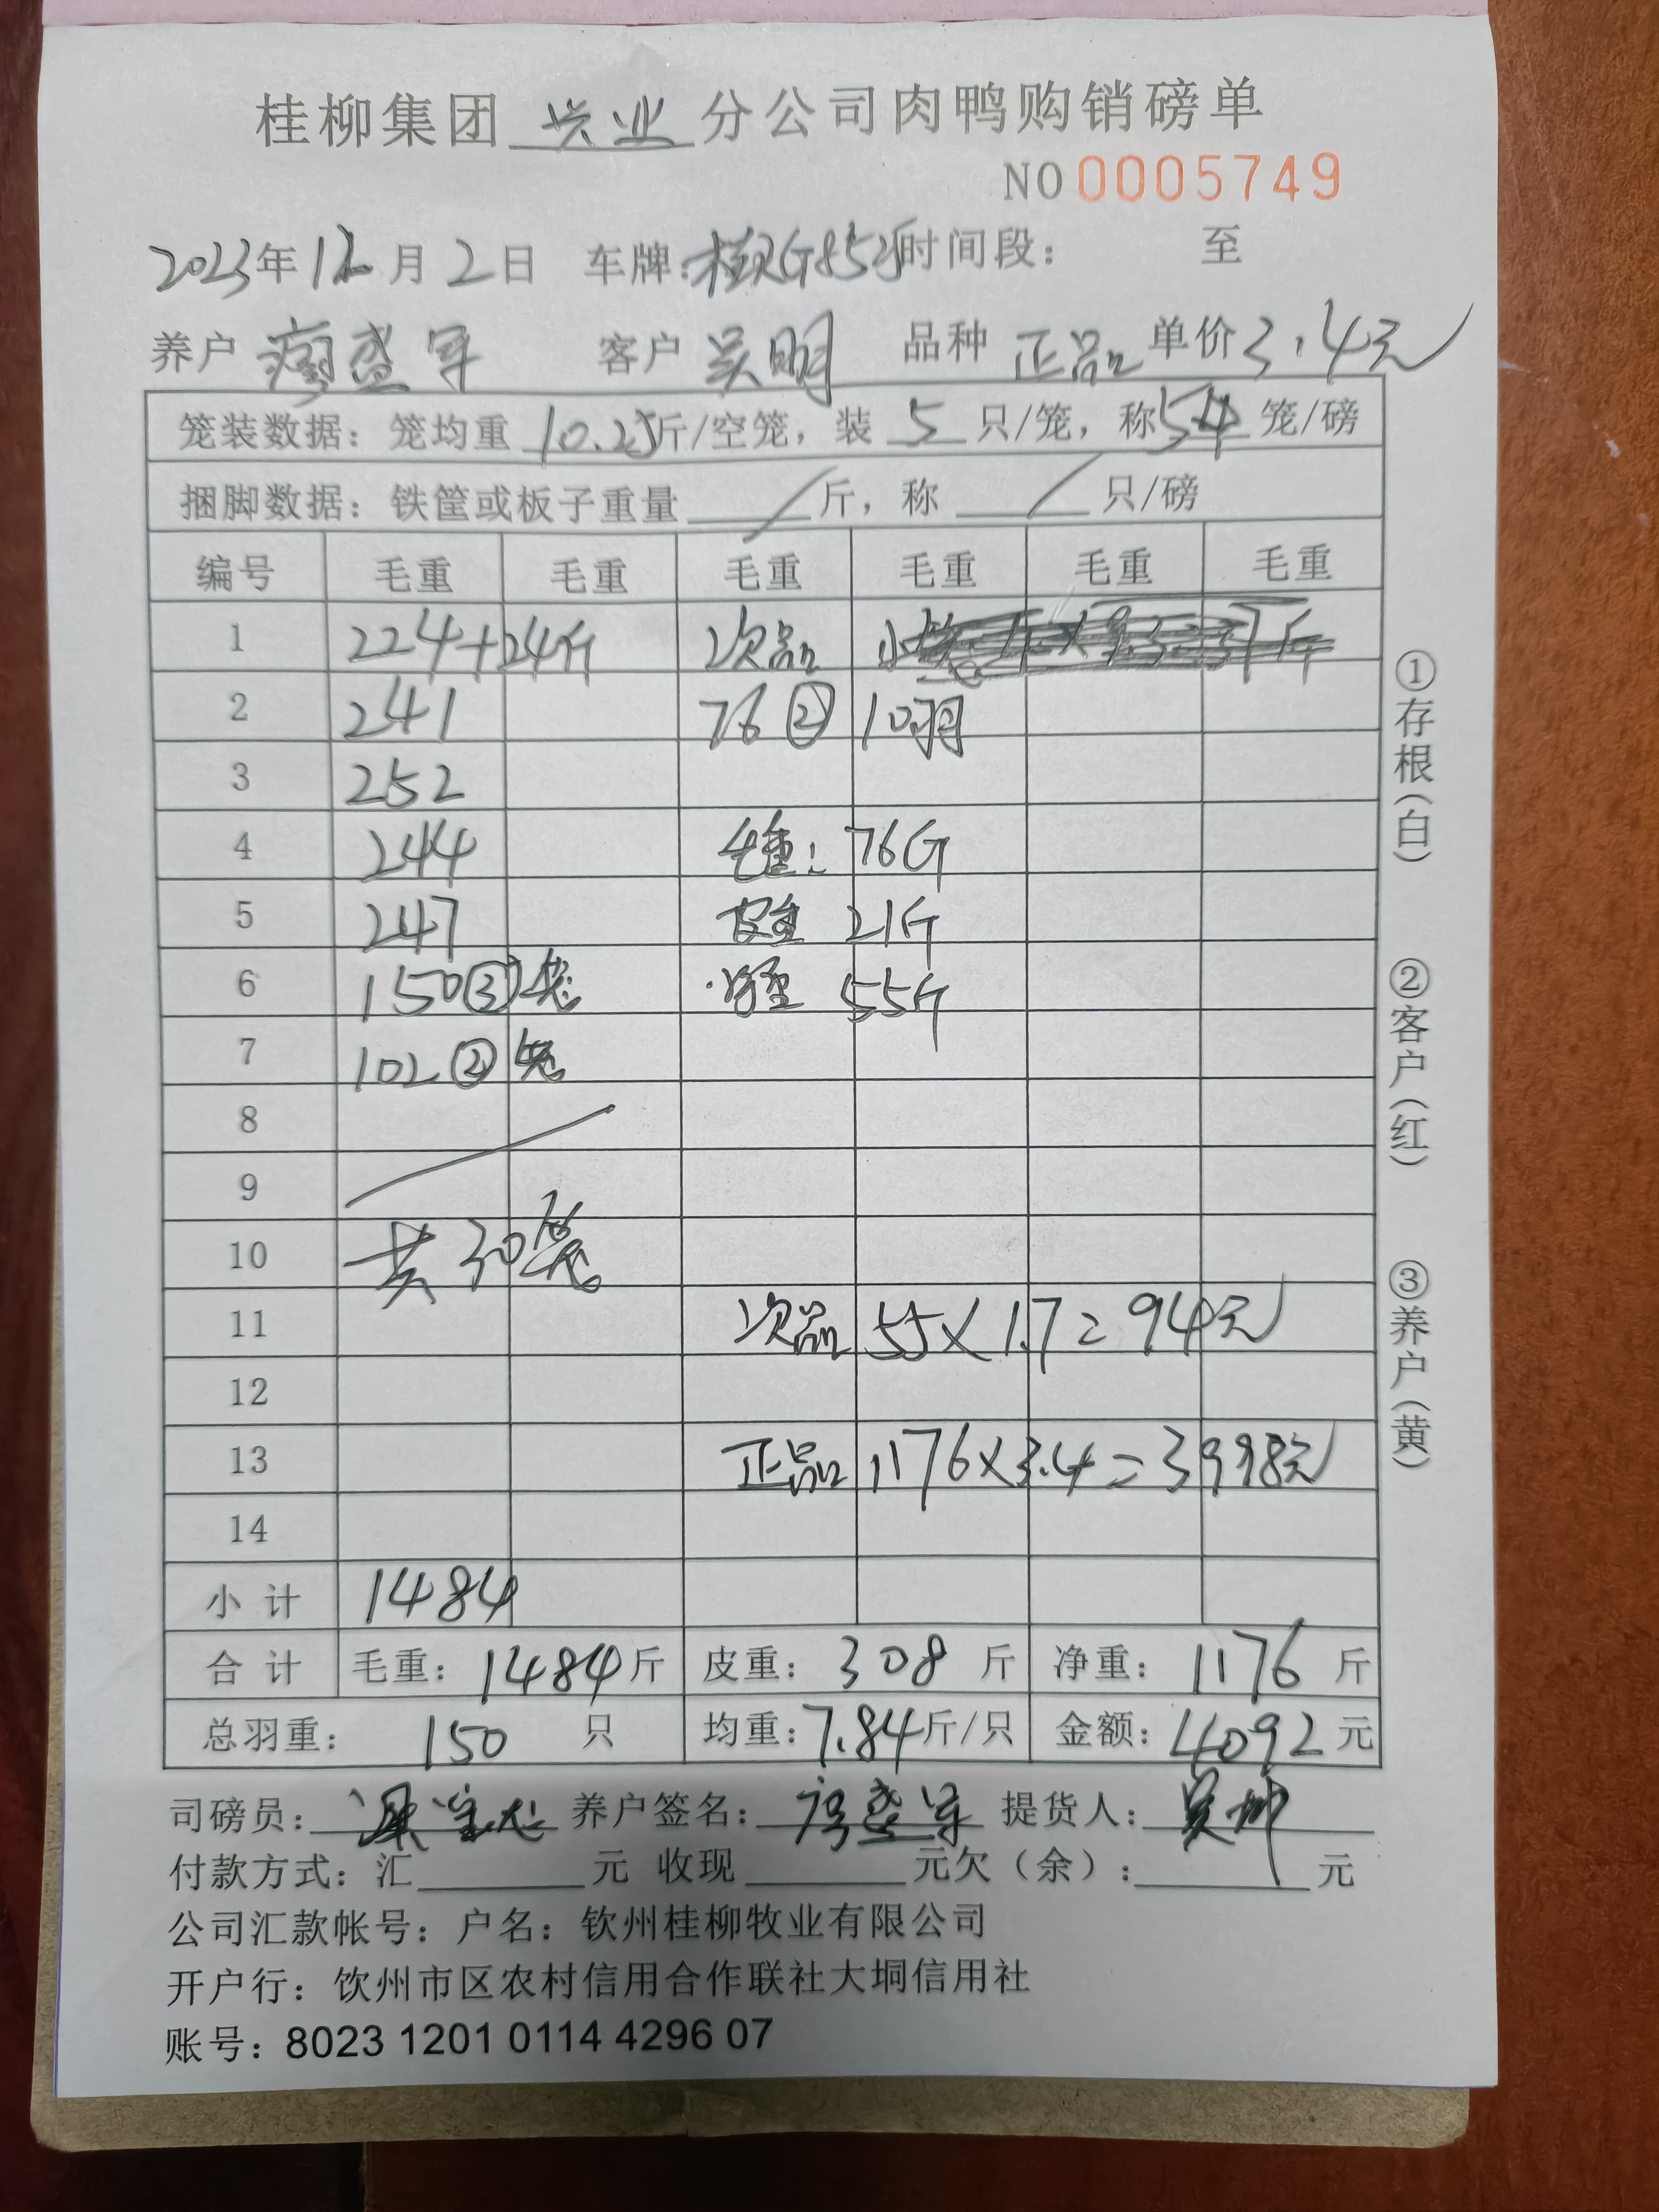 桂柳集团 兴业 分公司肉鸭购销磅单
NO 0005749
2023年12月2日 车牌: 时间段: 至
养户 廖盛军 客户 吴明 品种 正品 单价 3.4元
笼装数据: 笼均重 10.25斤/空笼, 装 5 只/笼, 称 5.4 笼/磅
捆脚数据: 铁筐或板子重量 / 斤, 称 / 只/磅
编号 毛重 毛重 毛重 毛重 毛重 毛重
1 224+24斤 次品 小
2 241 76② 10羽
3 252
4 244 毛重: 76斤
5 247 皮重 21斤
6 150③笼 净重 55斤
7 102②笼
8
9
10 共30笼
11 次品 55×1.7=94元
12
13 正品 1176×3.4=3998元
14
小计 1484
合计 毛重: 1484斤 皮重: 308斤 净重: 1176斤
总羽重: 150 只 均重: 7.84斤/只 金额: 4092元
司磅员: 养户签名: 廖盛军 提货人: 吴
付款方式: 汇 元 收现 元欠(余): 元
公司汇款帐号: 户名: 钦州桂柳牧业有限公司
开户行: 饮州市区农村信用合作联社大垌信用社
账号: 8023 1201 0114 4296 07
①存根(白)
②客户(红)
③养户(黄)